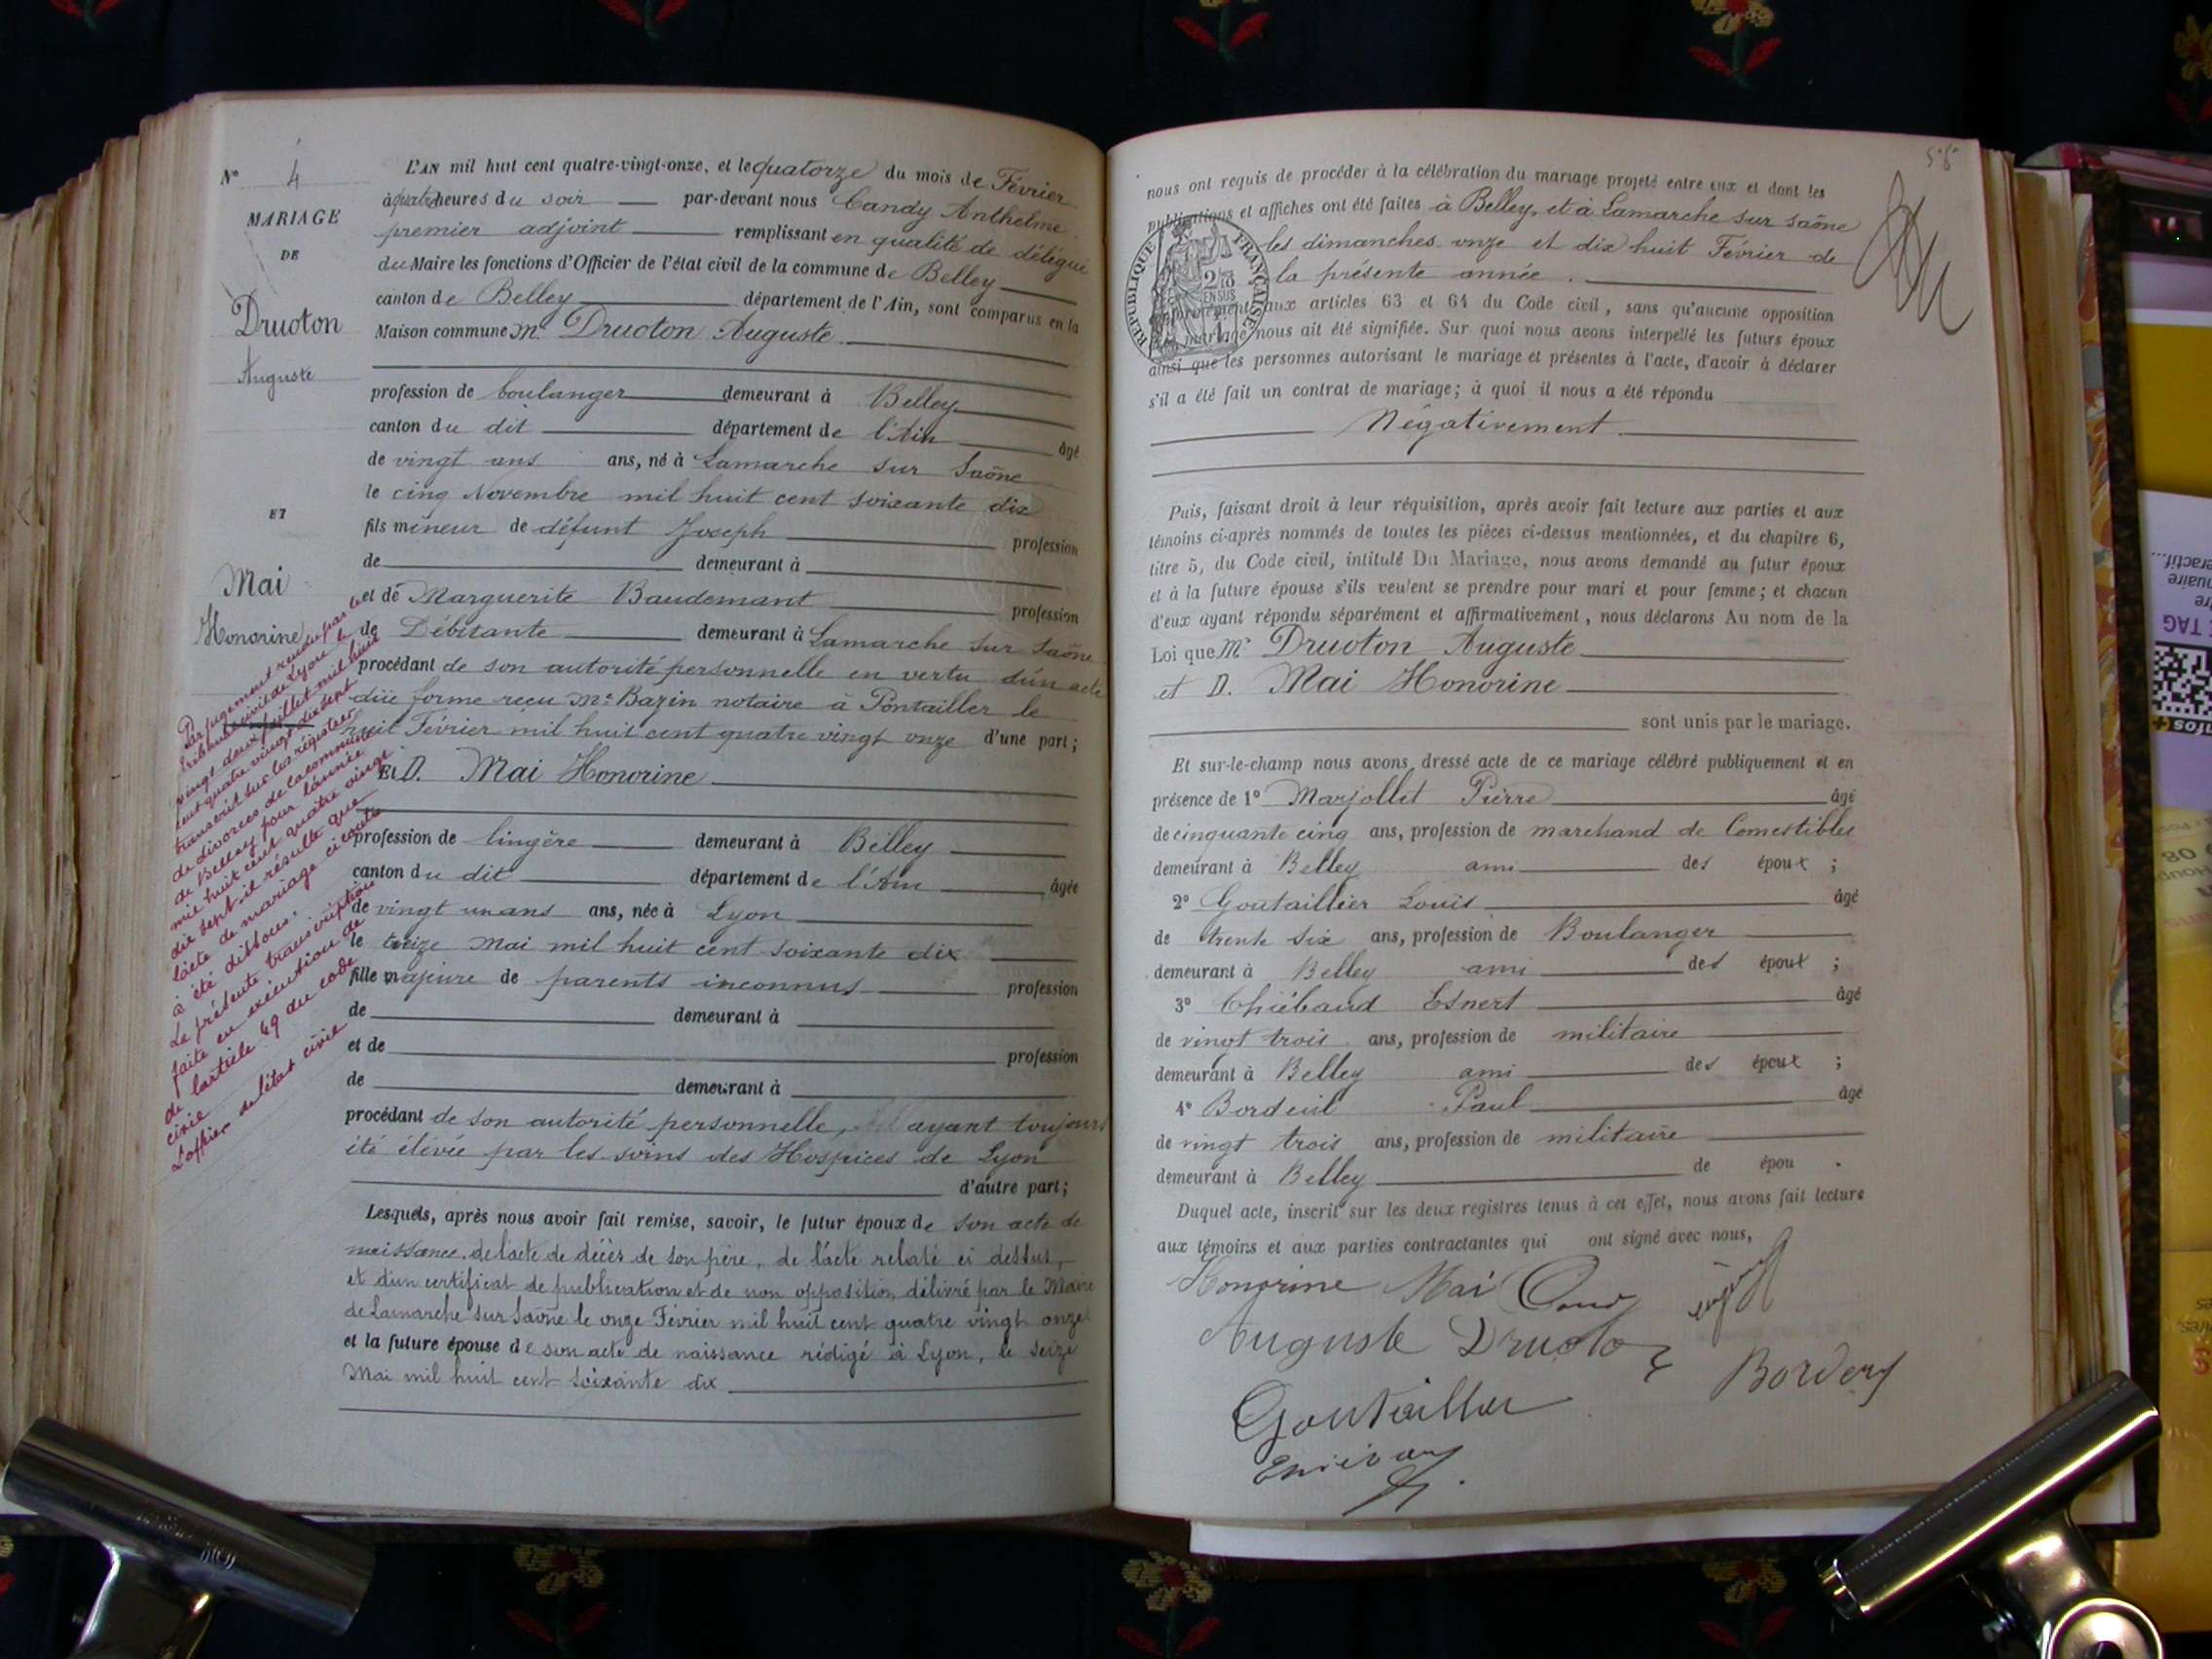 N° 4
MARIAGE
DE
Druoton
Auguste
ET
Mai
Honorine
Par jugement rendu par le
tribunal civil de Lyon le
vingt deux juillet mil huit
cent quatre vingt dix sept
transcrit sur les registres
de divorces de la commune
de Belley pour l'année
mil huit cent quatre vingt
dix sept il résulte que
l'acte de mariage ci contre
à été dissous.
La présente transcription
faite en exécution de
de l'article 49 du code
civil
L'officier de l'état civil
L'AN mil huit cent quatre-vingt-onze, et le quatorze du mois de Février
à quatre heures du soir par-devant nous Candy Anthelme
premier adjoint remplissant en qualité de délégué
du Maire les fonctions d'Officier de l'état civil de la commune de Belley
canton de Belley département de l'Ain, sont comparus en la
Maison commune Mr Druoton Auguste
profession de boulanger demeurant à Belley
canton du dit département de l'Ain âgé
de vingt ans ans, né à Lamarche sur Saône
le cinq Novembre mil huit cent soixante dix
fils mineur de défunt Joseph profession
de demeurant à
et de Marguerite Baudemant profession
de Débitante demeurant à Lamarche sur Saône
procédant de son autorité personnelle en vertu d'un acte
dûe forme reçu Me Bazin notaire à Pontailler le
huit Février mil huit cent quatre vingt onze d'une part;
Et D. Mai Honorine
profession de lingère demeurant à Belley
canton du dit département de l'Ain âgée
de vingt un ans ans, née à Lyon
le treize Mai mil huit cent soixante dix
fille majeure de parents inconnus profession
de demeurant à
et de profession
de demeurant à
procédant de son autorité personnelle, ayant toujours
été élévée par les soins des Hospices de Lyon
d'autre part;
Lesquels, après nous avoir fait remise, savoir, le futur époux de son acte de
naissance, de l'acte de décès de son père, de l'acte relaté ci dessus,
et d'un certificat de publication et de non opposition délivré par le Maire
de Lamarche sur Saône le onze Février mil huit cent quatre vingt onze
et la future épouse de son acte de naissance rédigé à Lyon, le seize
Mai mil huit cent soixante dix
nous ont requis de procéder à la célébration du mariage projeté entre eux et dont les
publications et affiches ont été faites à Belley, et à Lamarche sur Saône
les dimanches onze et dix huit Février de
la présente année.
RÉPUBLIQUE FRANÇAISE
conformément aux articles 63 et 64 du Code civil, sans qu'aucune opposition
mariage nous ait été signifiée. Sur quoi nous avons interpellé les futurs époux
ainsi que les personnes autorisant le mariage et présentes à l'acte, d'avoir à déclarer
s'il a été fait un contrat de mariage; à quoi il nous a été répondu
Négativement.
Puis, faisant droit à leur réquisition, après avoir fait lecture aux parties et aux
témoins ci-après nommés de toutes les pièces ci-dessus mentionnées, et du chapitre 6,
titre 5, du Code civil, intitulé Du Mariage, nous avons demandé au futur époux
et à la future épouse s'ils veulent se prendre pour mari et pour femme; et chacun
d'eux ayant répondu séparément et affirmativement, nous déclarons Au nom de la
Loi que Mr Druoton Auguste
et D. Mai Honorine
sont unis par le mariage.
Et sur-le-champ nous avons dressé acte de ce mariage célébré publiquement et en
présence de 1° Marjollet Pierre âgé
de cinquante cinq ans, profession de marchand de Comestibles
demeurant à Belley ami des époux ;
2° Goutaillier Louis âgé
de trente six ans, profession de Boulanger
demeurant à Belley ami des époux ;
3° Thiébaud Esnert âgé
de vingt trois ans, profession de militaire
demeurant à Belley ami des époux ;
4° Bordeuil Paul âgé
de vingt trois ans, profession de militaire
demeurant à Belley de épou .
Duquel acte, inscrit sur les deux registres tenus à cet effet, nous avons fait lecture
aux témoins et aux parties contractantes qui ont signé avec nous,
Honorine Mai
Auguste Druoton
Goutaillier